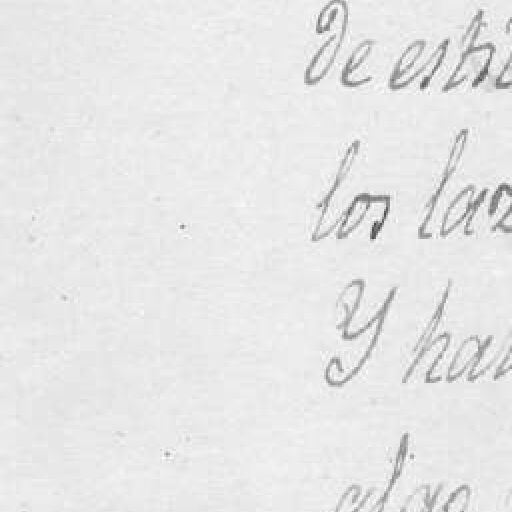 De estr
los laz
Y ha